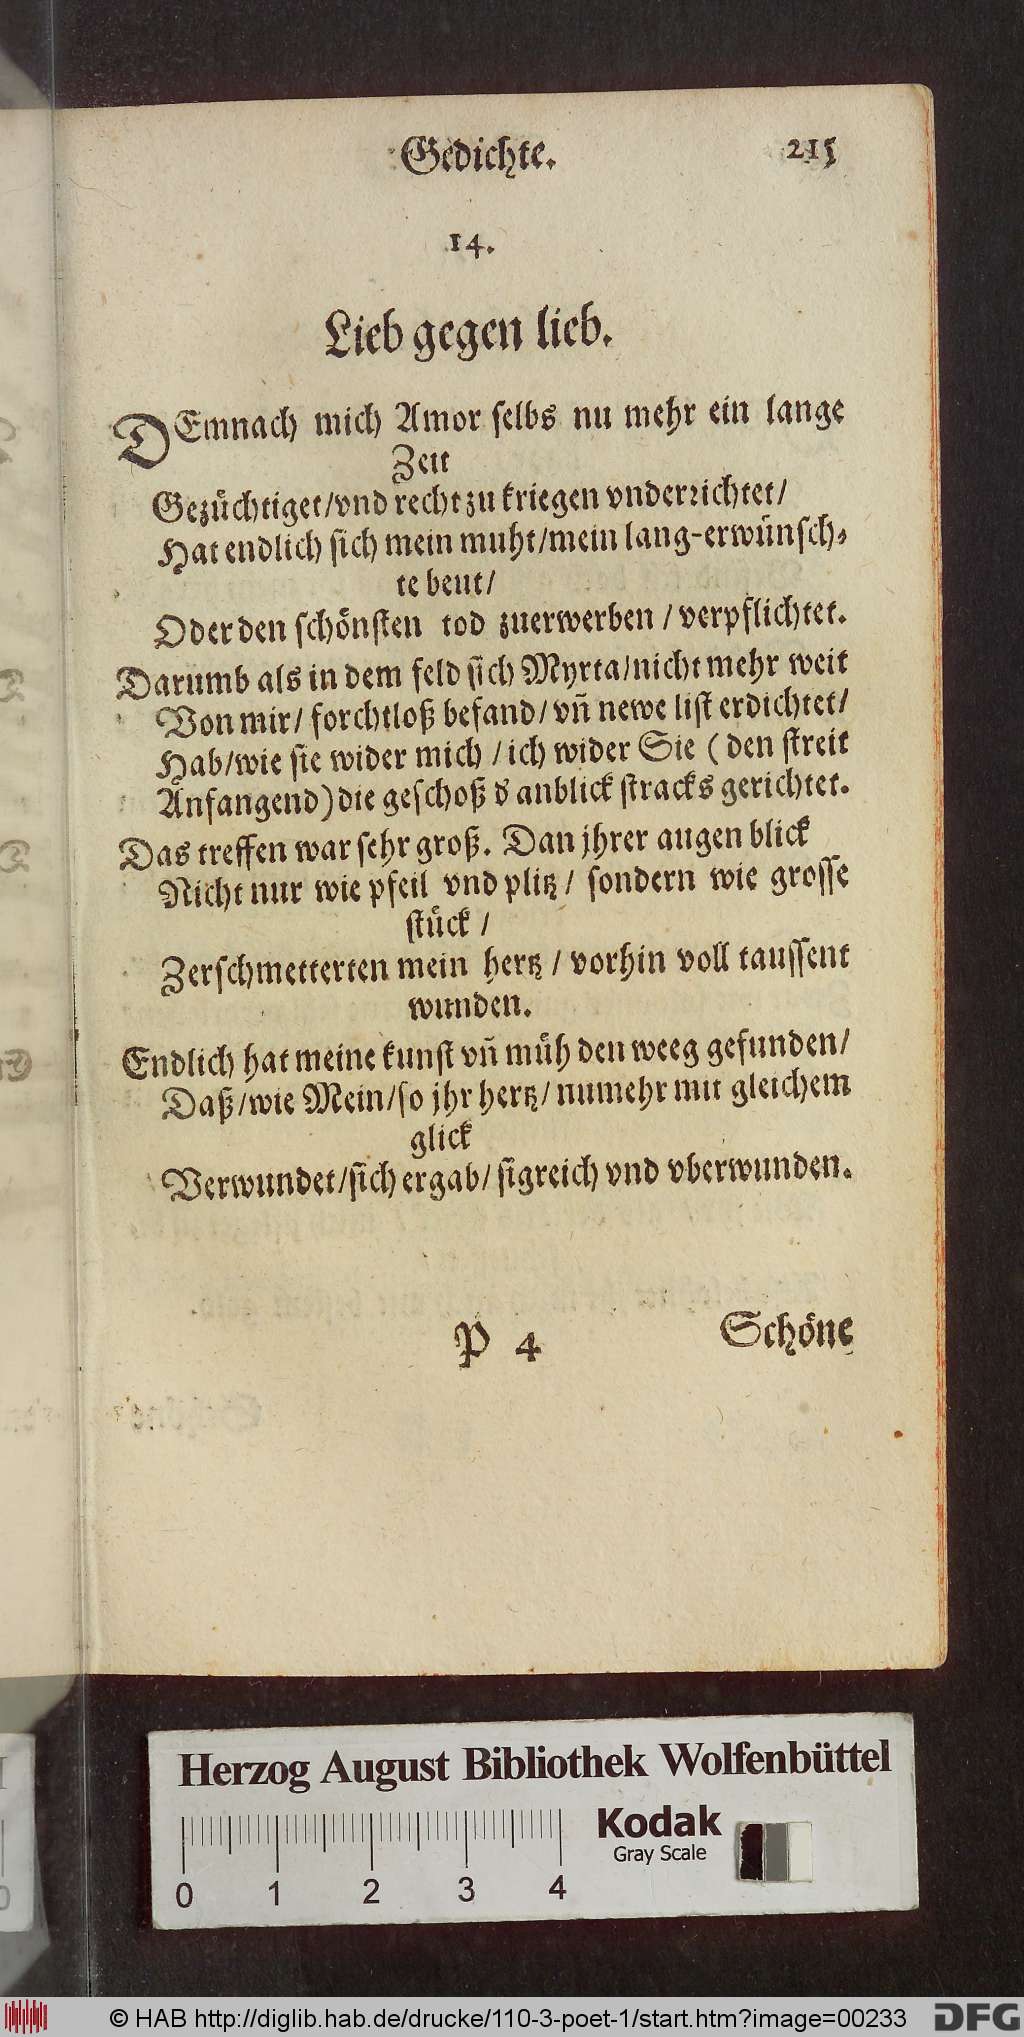 Gedichte. 215
14.
Lieb gegen lieb.
DEmnach mich Amor selbs nu mehr ein lange
Zeit
Gezüchtiget/vnd recht zu kriegen vnderrichtet/
Hat endlich sich mein muht/mein lang-erwünsch-
te beut/
Oder den schönsten tod zuerwerben / verpflichtet.
Darumb als in dem feld sich Myrta/nicht mehr weit
Von mir/ forchtloß befand/ vñ newe list erdichtet/
Hab/wie sie wider mich / ich wider Sie ( den streit
Anfangend) die geschoß d' anblick stracks gerichtet.
Das treffen war sehr groß. Dan jhrer augen blick
Nicht nur wie pfeil vnd plitz / sondern wie grosse
stück /
Zerschmetterten mein hertz / vorhin voll taussent
wunden.
Endlich hat meine kunst vñ müh den weeg gefunden/
Daß/wie Mein/so jhr hertz/ numehr mit gleichem
glick
Verwundet/sich ergab/ sigreich vnd vberwunden.
P 4 Schöne
Herzog August Bibliothek Wolfenbüttel
Kodak
Gray Scale
0 1 2 3 4
© HAB http://diglib.hab.de/drucke/110-3-poet-1/start.htm?image=00233
DFG